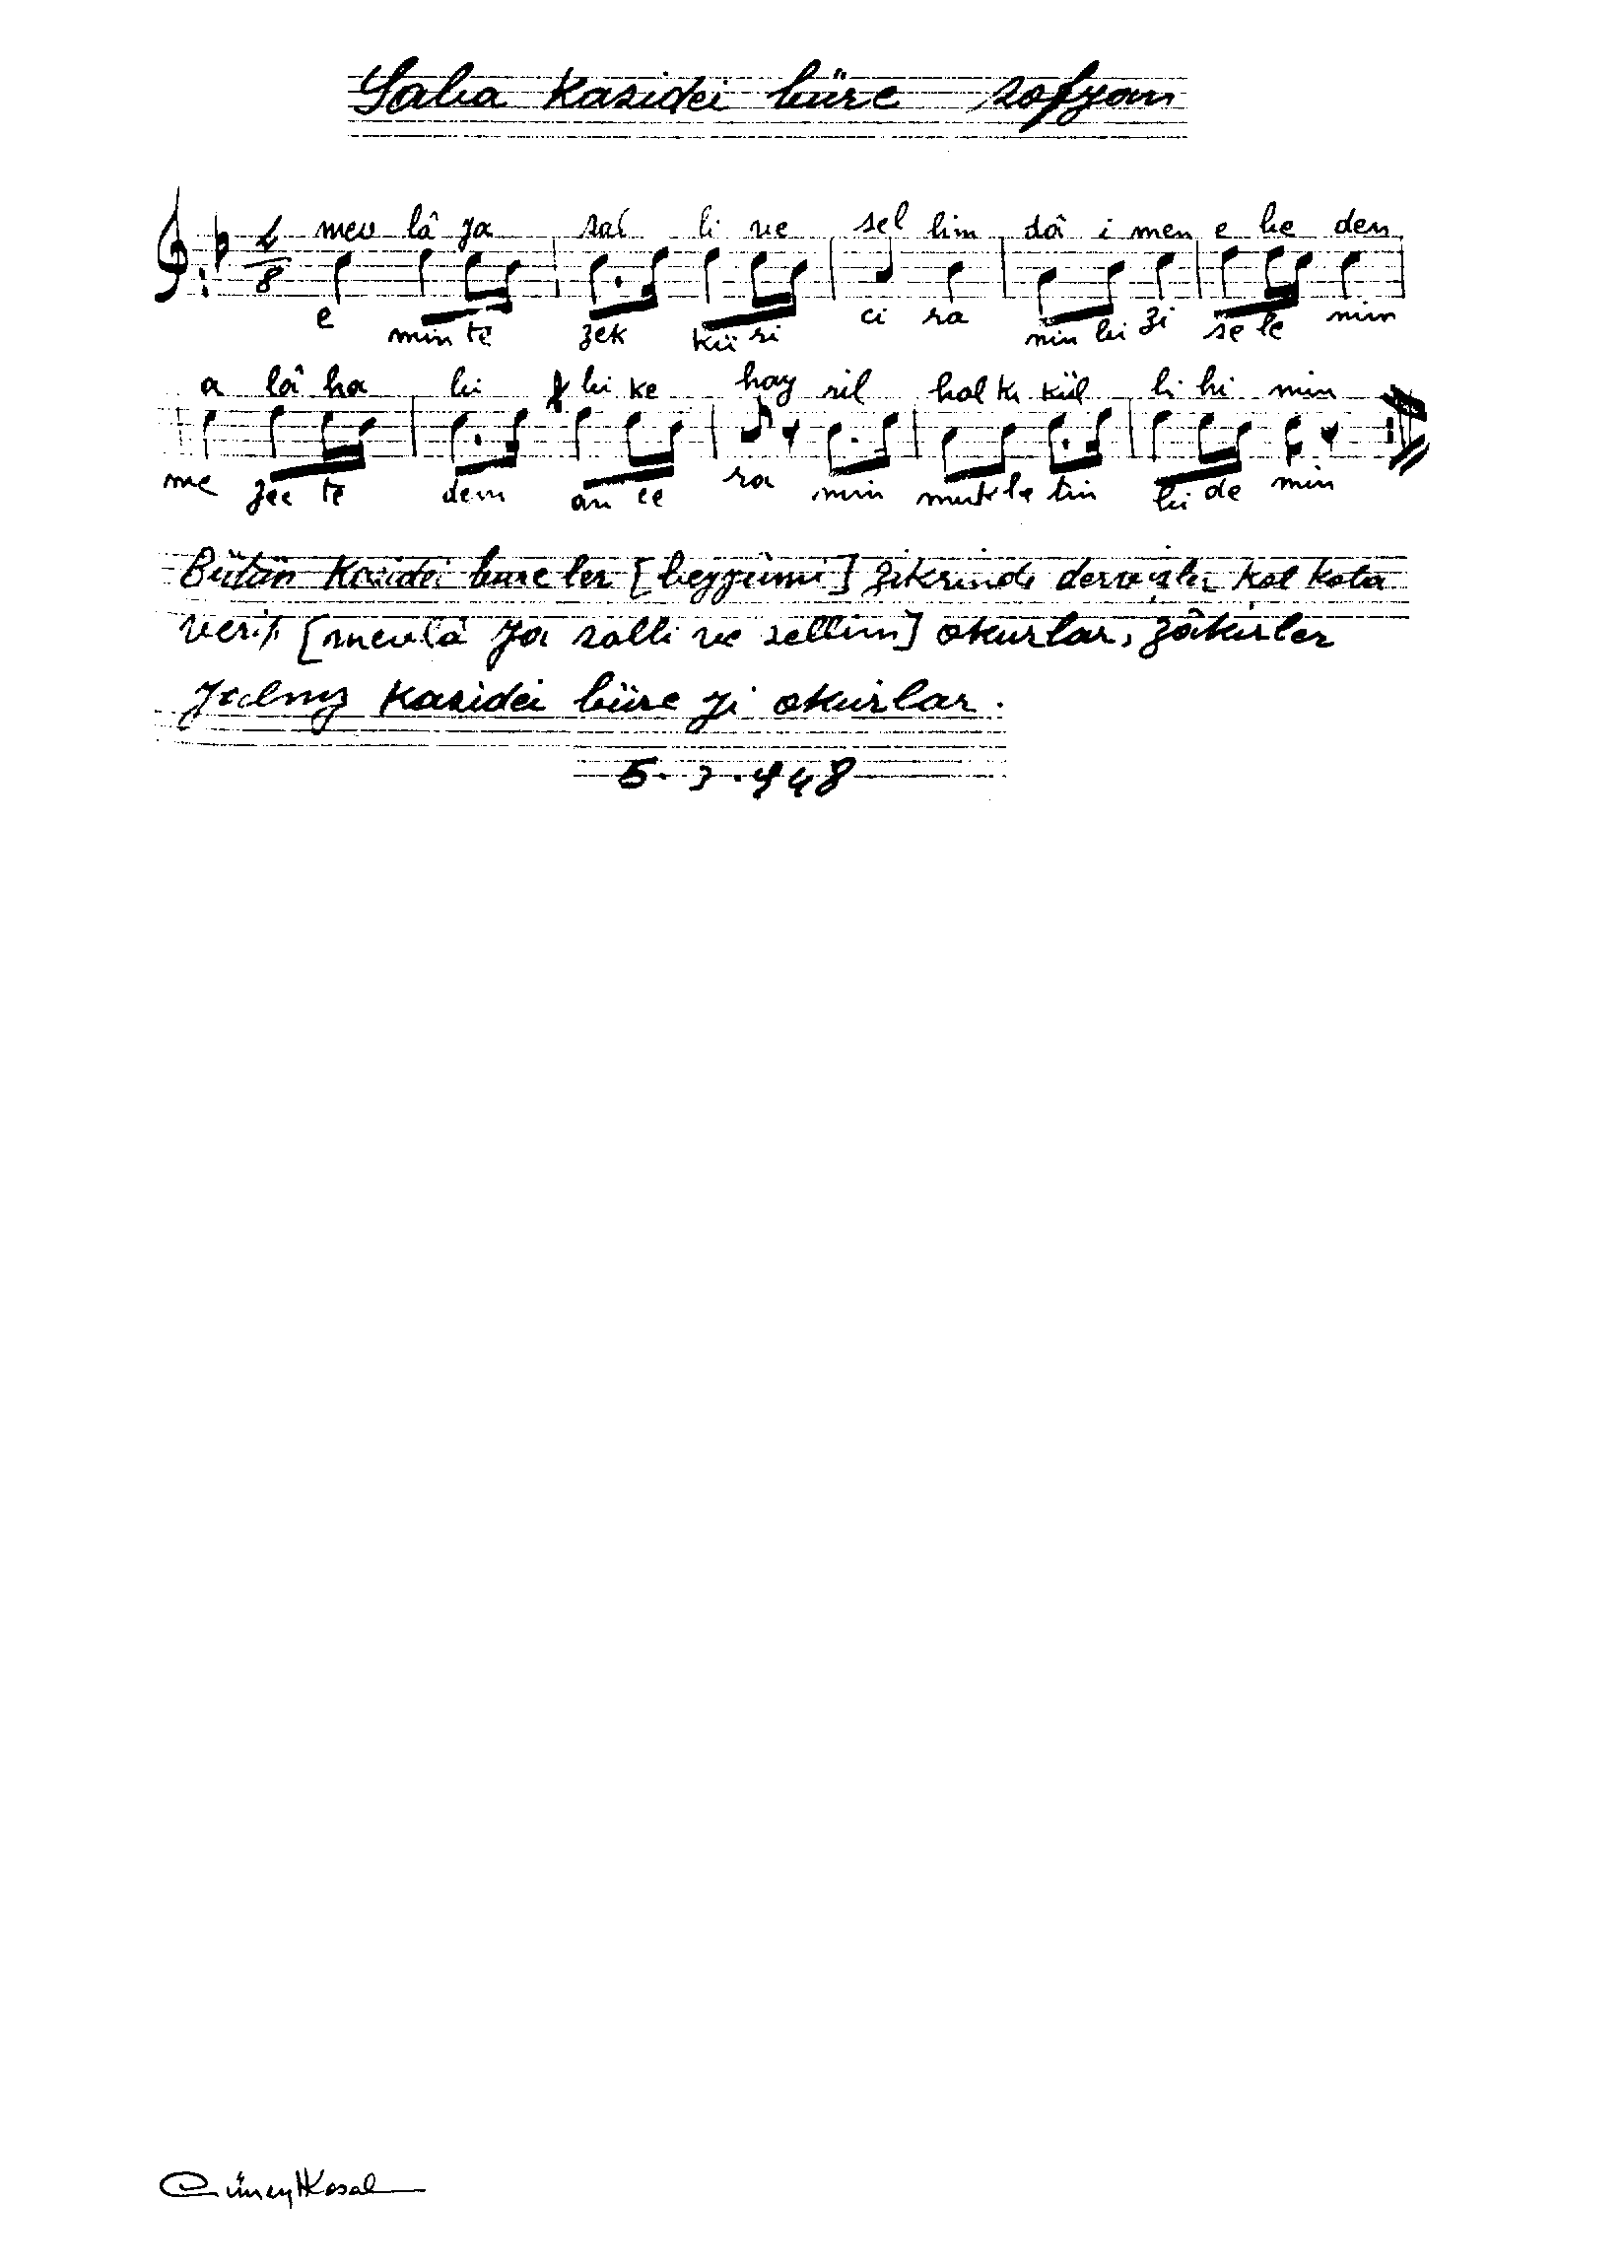 Saba Kasidei büre sofyan
4/8
mev lâ ya sal li ve sel lim dâ i men e be den
e min te zek kü ri ci ra nin bi zi se le min
a lâ ha bi bi ke hay ril hal kı kül li hi min
me zec te dem an ce ra min muk le tin bi de min
Bütün Kasidei büreler [beyyûmi] zikrinde dervişler kol kola
verip [mevlâ ya salli ve sellim] okurlar, zâkirler
Yalnız Kasidei büre yi okurlar.
5.3.948
CüneydKosal